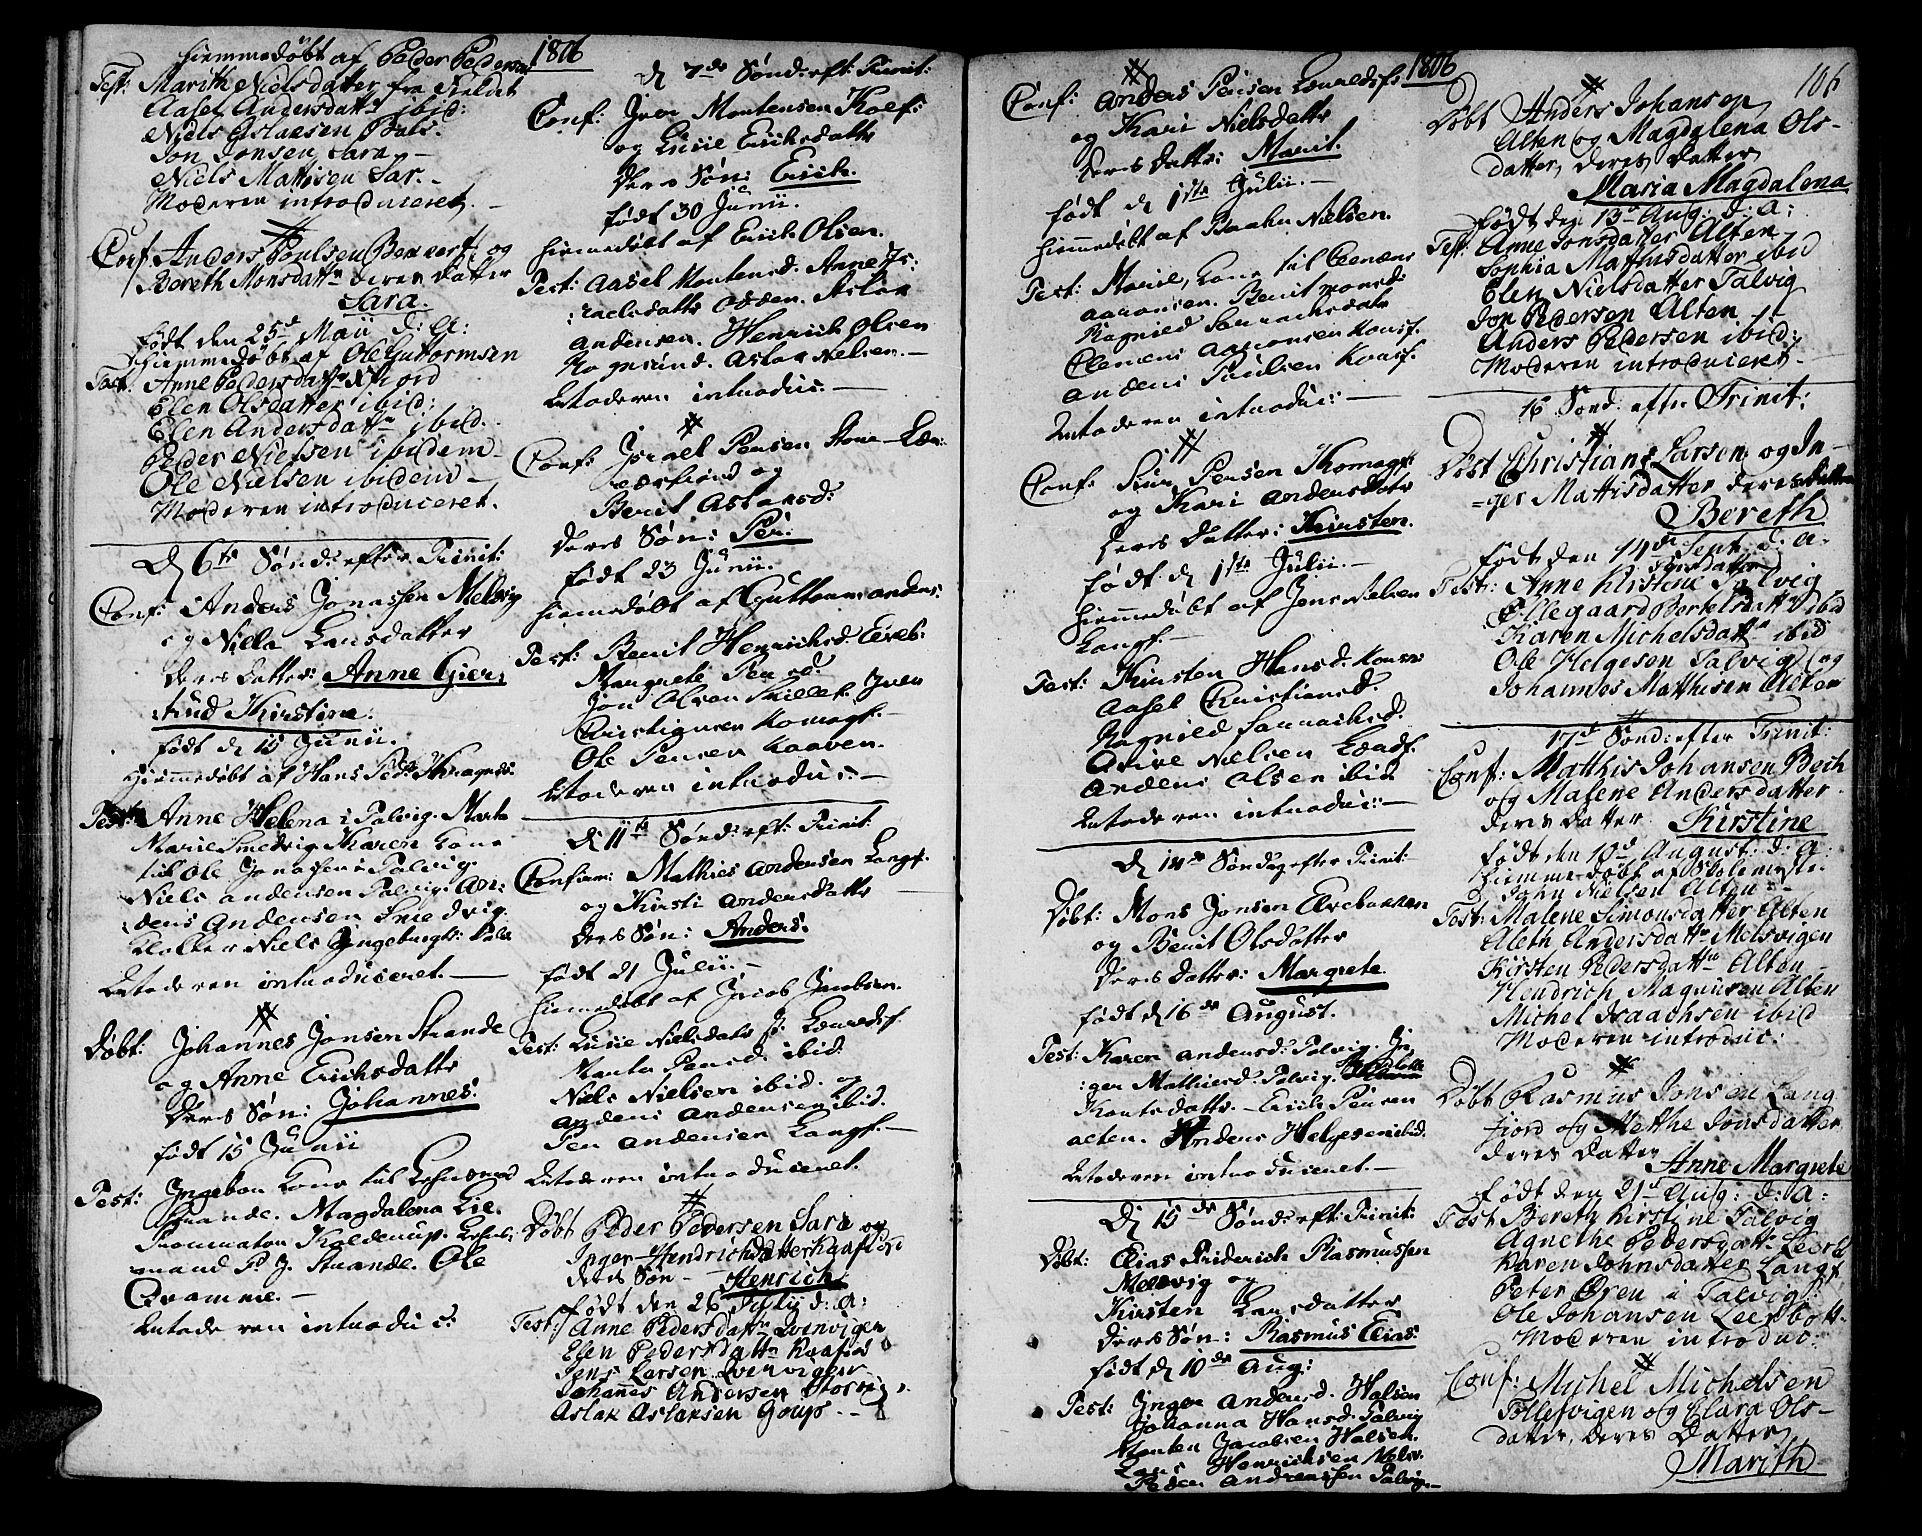 hiemmedøbt af Peder Pedersen
Test: Marith Nielsdatter fra
Aasel Andersdatter ibid:
Niels Aslaksen Bals.
Jon Jonsen Sara –
Niels Mathisen Sar. –
Moderen introduceret. –
Conf: Anders Poulsen Beaverf. og
Bereth Monsdattr deres datter
Sara.
født den 25d Maii d: A:
hiemmedøbt af Ole Guttormsen
Test: Anne Pedersdattr Xfiord
Elen Olsdatter ibid:
Elen Andersdattr ibid.
Peder Nielsen ibidem –
Ole Nielsen ibidem –
Moderen introduceret.
D 6te Sønd: efter Trinit:
Conf: Anders Jonassen Melsvig
og Niella Larsdatter
deres datter: Anne Gier-
trud Kirstine.
født d 15 Junii.
Hiemmedøbt af Hans Peds:
Test: Anne Helena i Talvig. Marte
Marie Smedvig. Karen Kone
til Ole Jonassen i Talvig.
Niels Andersen Talvig. An:
ders Andersen Smedvig.
Klokker Niels Ingebrigts: Talv
Moderen introduceret. –
Døbt: Johannes Jonsen Strande
og Anne Erichsdattr
deres Søn: Johannes.
født 15 Junii
Test: Ingebor Kone til Lehnsmand
Strande. Magdalena Lie.
Procurator Kolderup. Lehns:
mand P. J. Strande. Ole
Qvamme. –
Moderen introduc:
1806
d 7de Sønd: eft: Trinit:
Conf: Iver Mortensen Kolf:
og Lusie Erichsdattr
deres Søn: Erich.
født 30 Junii.
hiemmedøbt af Erich Olsen.
Test: Aasel Mortensd. Anne Is:
raelsdattr Aslak
Andersen. Henrich Olsen
Aslak Nielsen. –
Moderen introduc: –
Conf: Israel Persen Store-Lær:
reesfiord og
Berit Aslaksd:
deres Søn: Per.
født 23 Junii.
hiemedøbt af Guttorm Anders:
Test: Berit Henrichsd:
Margrete Persd:
Jon Olsen Iver
Christiansen Komagf. –
Ole Persen Kaaven.
Moderen introduc: –
D 11te Sønd: eft: Trinit:
Confirm: Mathies Andersen Langf.
og Kirsti Andersdattr
deres Søn: Anders.
født d 1 Julii. –
hiemedøbt af Jacob Jacobsen.
Test: Lusie Nielsdattr
Marta Persd: ibid:
Niels Nielsen ibid. og
Anders Andersen ibid.
Per Andersen Langf. –
Moderen introduceret.
Døbt Peder Pedersen Sara og
Inger Hendrichsdatter Kaafiord
deres Søn – Henrich
født den 26 Julii d: A:
Test: Anne Pedersdattr Qvenvigen
Elen Pedersdattr Kaafio
Jens Larsen Qvenvigen
Johannes Andersen
Aslak Aslaksen –
1806
Conf: Anders Persen Leeredsf:
og Kari Nielsdattr
deres dattr: Marit.
født d 1ste Julii. –
hiemmedøbt af Nielsen.
Test: Marie, Kone til Clemens
Aaronsen. Berit Monsd:
Ragnild
Clemens Aaronsen Korsf.
Anders Paulsen Korsf.
Moderen introduc: –
Conf: Siur Persen Komagf:
og Kari Andersdattr
deres datter: Kirsten.
født d 1ste Julii. –
hiemmedøbt af Jens Nielsen
Langf. –
Test: Kirsten Hansd. Korsn:
Aasel Christiansd:
Ragnild
Nielsen
Anders Olsen ibid
Moderen introduc: –
D 14de Søndag efter Trinit: –
Døbt: Mons Jonsen Elvebakken
og Berit Olsdatter
deres datter: Margrete.
født d 16de August.
Test: Karen Andersd: Talvig. In
:ger Mathisd. Talvig.
Knutsdattr. – Erich Persen
Alten. Anders Helgesen ibid.
Moderen introduceret. –
D 15de Sønd: eft: Trinit:
Døbt: Elias Friderich Rasmussen
Melsvig og
Kirsten Larsdatter
deres Søn: Rasmus Elias.
født d 10de Aug:
Test: Inger Andersd. Halsen
Johanna Hansd. Talvig
Morten Jacobsen Halsen.
Lars Henrichsen Melsv.
Peder Andreassen Talvig. –
106
Døbt Anders Johansen
Alten og Magdalena Ols-
datter, deres datter
Maria Magdalena
født den 13d Aug: d: A:
Test: Anne Jonsdatter Alten
Sophia Mathisdatter ibid
Elen Nielsdatter Talvig
Jon Pedersen Alten –
Anders Pedersen ibid:
Moderen introduceret –
16 Sønd. efter Trinit:
Døbt Christian Larsen og In-
=ger Mattisdatter deres datter
Bereth
født den 14de Sept. d: A.
Test: Anne Kirstine Jonsdatter Talvig
Ellegaard Bertelsdattr ibid
Karen Michelsdattr ibid
Ole Helgesen Talvig og
Johannes Matthisen Alten
17d Sønd: efter Trinit:
Conf: Matthis Johansen Bech
og Malene Andersdatter
deres datter Kirstine
født den 10d August: d: A:
hiemmedøbt af Skolemestr.
John Nielsen Alten –
Test: Malene Simonsdatter Alten
Aleth Andersdattr Melsvigen
Kirsten Pedersdattr Alten –
Hendrich Magnusen Alten
Michel Isaachsen ibid
Moderen introduc:
Døbt Rasmus Jonsen Lang
fiord og Methe Jonsdatter
deres datter
Anne Margrete
født den 21d Aug: d: A:
Test Bereth Kirstine Talvig
Agnethe Pedersdattr Leerb
Karen Johnsdatter Langf
Peter Øren i Talvig
Ole Johansen Leerbott.
Moderen introduc:
Conf: Michel Michelsen
Tollefvigen og Clara Ols-
datter, deres datter
Marith